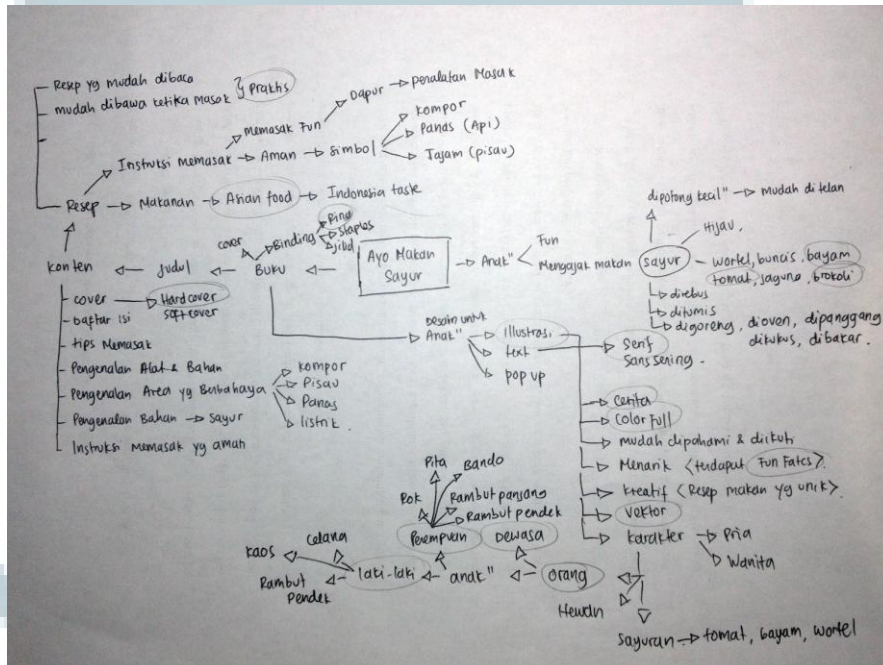 Resep yg mudah dibaca
mudah dibawa ketika masak } praktis
Instruksi memasak
memasak Fun
Dapur
peralatan Masak
Aman
simbol
kompor
Panas (Api)
Tajam (pisau)
Resep
Makanan
Asian food
Indonesia taste
konten
judul
Buku
cover
Binding
Ring
Staples
jilid
Ayo Makan
Sayur
Anak"
Fun
Mengajak makan
sayur
dipotong kecil"
mudah ditelan
Hijau.
wortel, buncis, bayam
tomat, jagung, brokoli
direbus
ditumis
digoreng, dioven, dipanggang
dikukus, dibakar.
cover
Hardcover
softcover
daftar isi
tips Memasak
Pengenalan Alat & Bahan
Pengenalan Area yg Berbahaya
kompor
Pisau
Panas
listrik.
Pengenalan Bahan
sayur
Instruksi Memasak yg aman
Desain untuk
Anak"
Illustrasi
text
pop up
Serif
Sans sering.
Cerita
Color Full
mudah dipahami & diikuti
Menarik <terdapat Fun Fates>.
kreatif <Resep makan yg unik>.
Vektor
karakter
Pria
Wanita
orang
Hewan
Sayuran
tomat, bayam, wortel
Dewasa
anak"
Perempuan
Rok
Pita
Bando
Rambut panjang
Rambut pendek
laki-laki
kaos
Celana
Rambut
Pendek